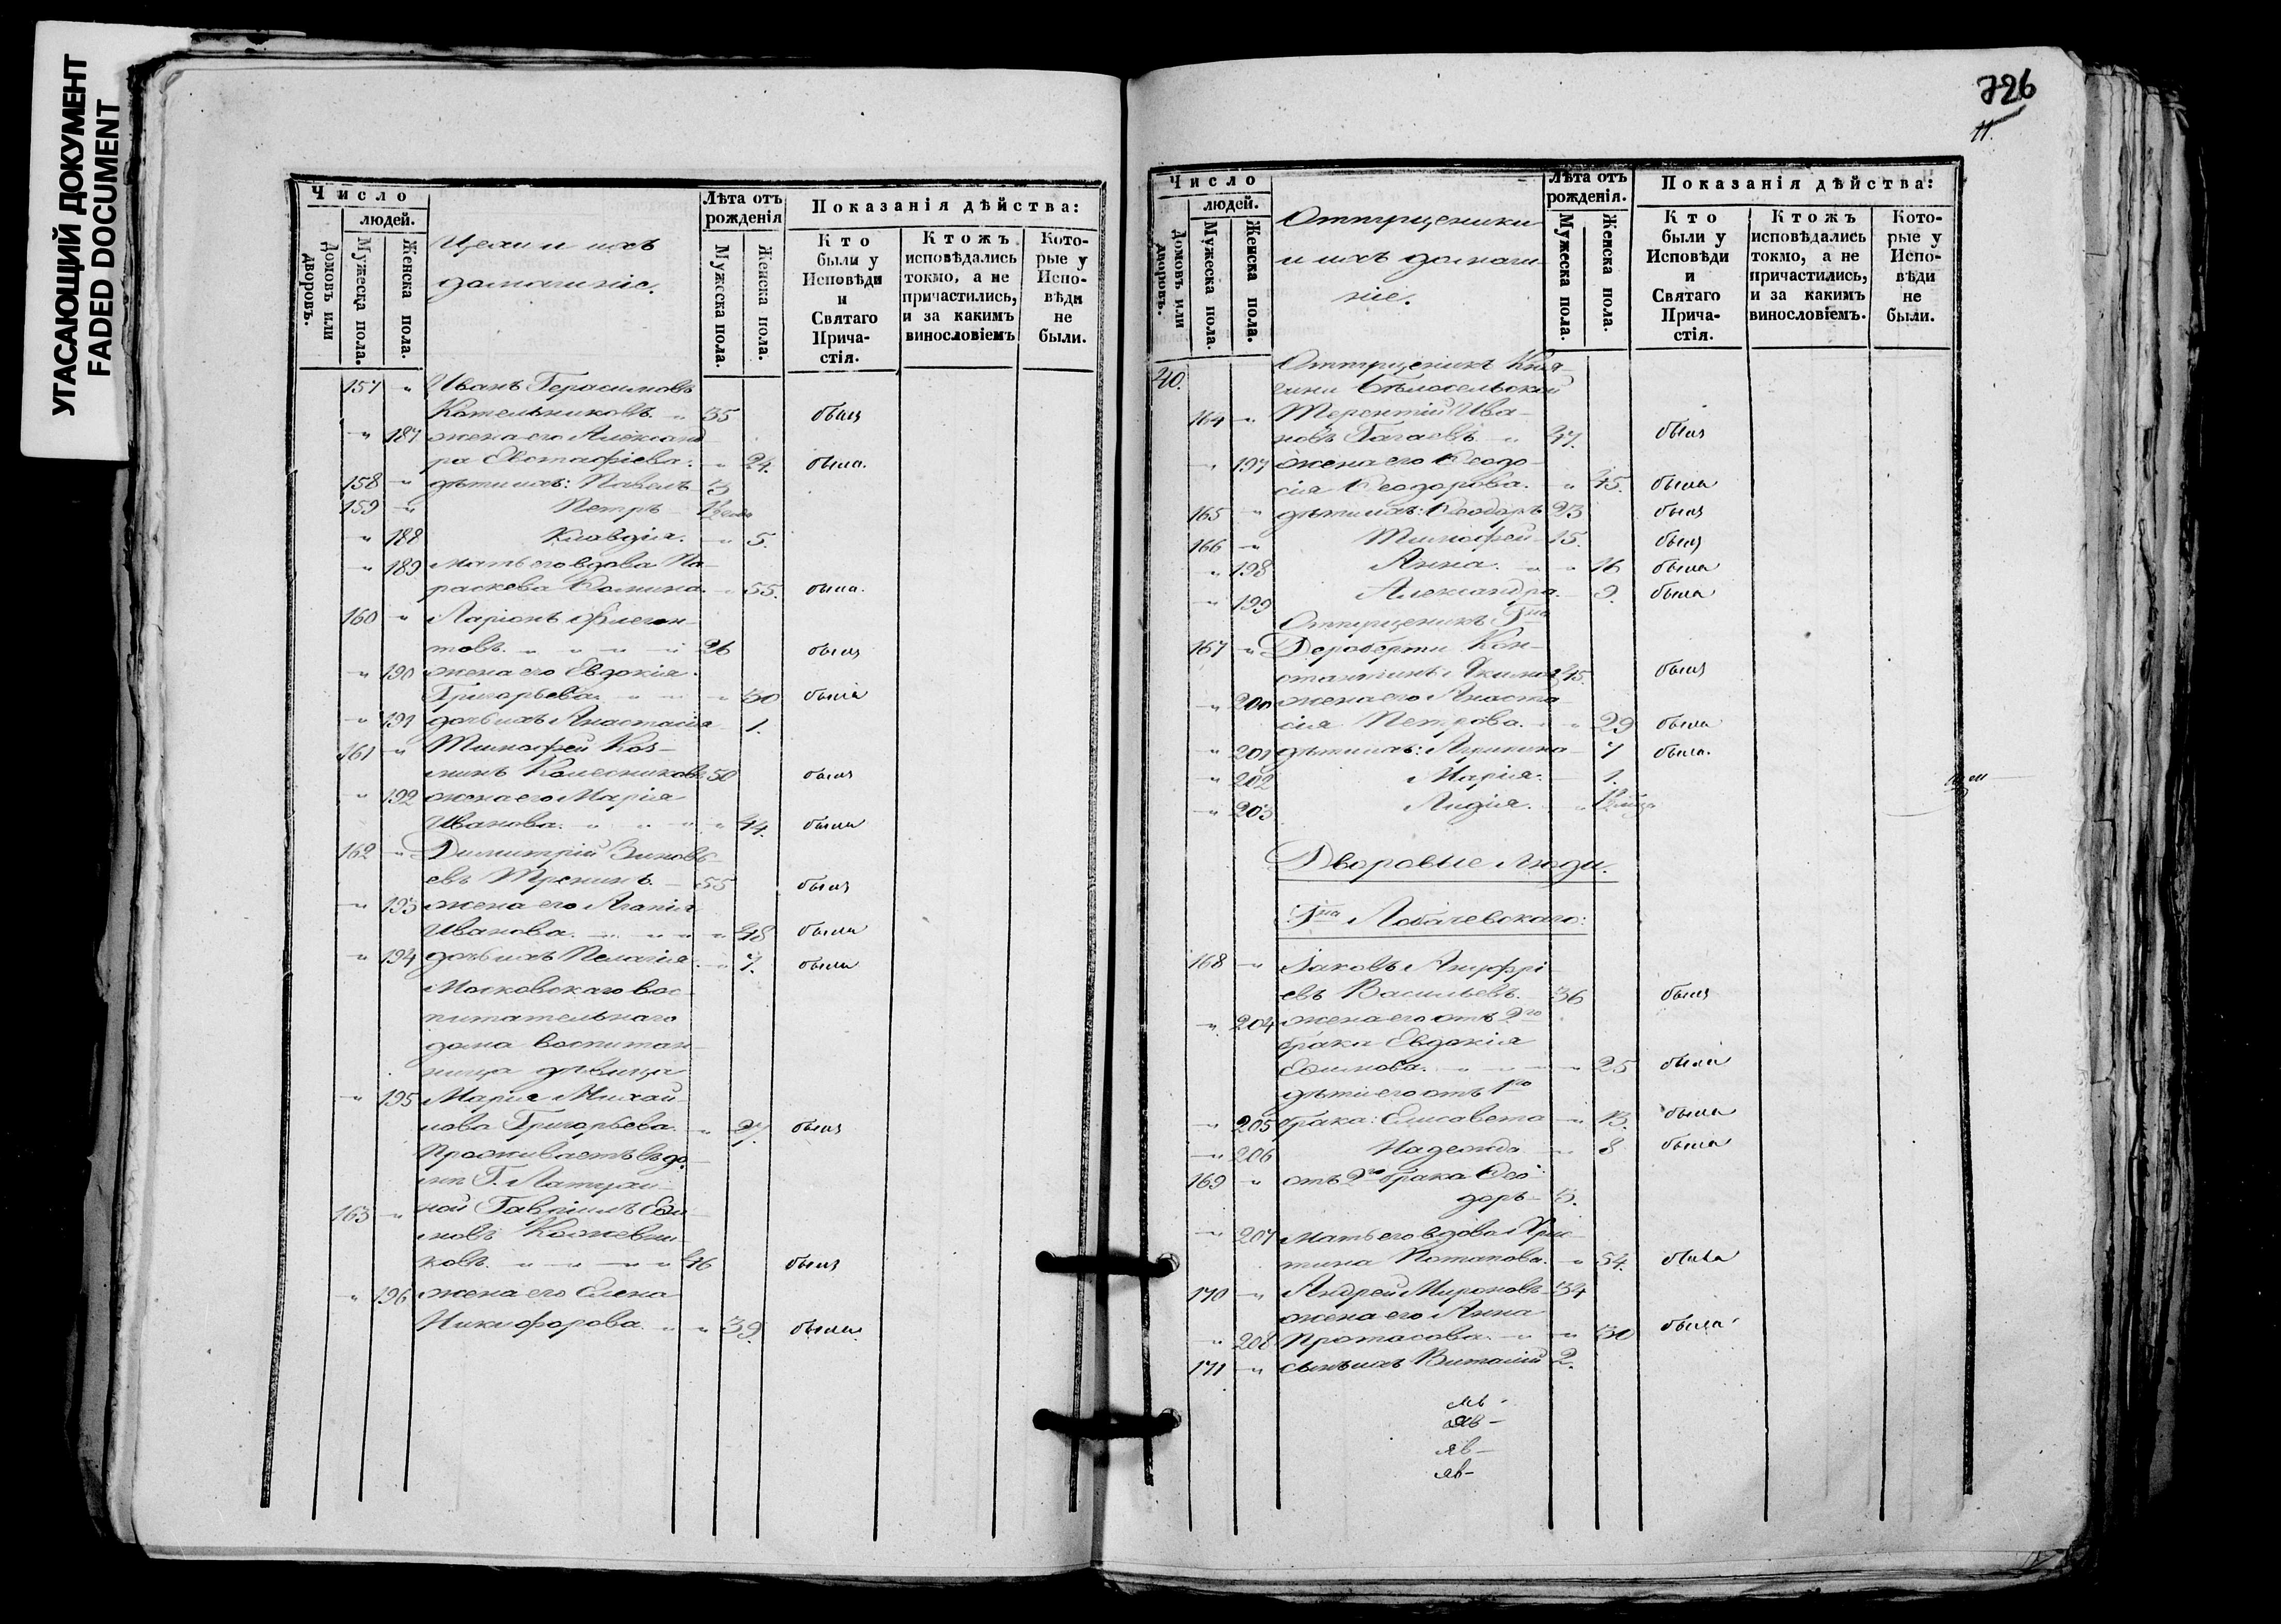 УГАСАЮЩИЙ ДОКУМЕНТ
FADED DOCUMENT
Число
людей.
Домовъ или дворовъ.
Мужеска пола.
Женска пола.
Цехи и ихъ
домашніе.
Лѣта отъ рожденія
Мужеска пола.
Женска пола.
Показанія дѣйства:
Кто были у Исповѣди и Святаго Причастія.
Ктожъ исповѣдались токмо, а не причастились, и за какимъ винословіемъ
Которые у Исповѣди не были.
157 " Иванъ Герасимовъ
Котельниковъ. " 35 былъ
" 187 жена его Александ
ра Евстафіева: " 24. была.
158 " дѣти ихъ: Павелъ 3
159 " Петръ
" 188 Клавдія. " 5.
" 189 Мать его вдова Па-
раскева Фомина. " 55. была.
160 " Ларіонъ Флегон-
товъ. " " " " 26 былъ
" 190 жена его Евдокія
Григорьева. " " " 30 была
" 191 дочь ихъ Анастасія 1.
161 " Тимофей Коз-
минъ Колесниковъ 50 былъ
" 192 жена его Марія
Иванова. " " " " 44. была
162 " Димитрій Зиновь
евъ Тренинъ. 55 былъ
" 193 жена его Агапія
Иванова. " " " " 48 была
" 194 дочь ихъ Пелагія. " 7. была
Московскаго вос-
питательнаго
дома воспитан-
ница дѣвица
" 195 Марія Михай-
лова Григорьева. " 27. былъ
Проживаетъ въ до-
мѣ Г.
163 " ной Гавріилъ Ефи-
мовъ Кожевни-
ковъ. " " " " 46 былъ
" 196 жена его Елена
Никифорова. " " 39. была.
726
11.
Число
людей.
Домовъ или дворовъ.
Мужеска пола.
Женска пола.
Отпущеники
и ихъ домаш-
ніе.
Лѣта отъ рожденія.
Мужеска пола.
Женска пола.
Показанія дѣйства:
Кто были у Исповѣди и Святаго Причастія.
Ктожъ исповѣдались токмо, а не причастились, и за какимъ винословіемъ.
Которые у Исповѣди не были.
40. Отпущеникъ Кня-
гини Бѣлосельской
164 " Терентій Ива-
новъ Гагаевъ. " 47. былъ
" 197 жена его Ѳеодо-
сія Ѳеодорова. " 45. была
165 " дѣти ихъ: Ѳеодоръ 23 былъ
166 " Тимофей 15. былъ
" 198 Анна. " " 16 была
" 199 Александра. 9. была
Отпущеникъ Гна
167 " Дероберти Кон-
стантинъ 45. былъ
" 200 жена его Анаста
сія Петрова. " " 29 была
" 201 дѣти ихъ: 7 была.
" 202 Марія. 1.
" 203 Лидія.
Дворовые люди.
Гна Лобачевскаго:
168 " Іаковъ Ануфрі
евъ Васильевъ. 36 былъ
" 204 жена его отъ 2го
брака Евдокія
Ефимова. " " " " 25 была
дѣти его отъ 1го
" 205 брака: Елисавета " 13. была
" 206 Надежда " 8 была
169 " отъ 2го брака Ѳео-
доръ 3.
" 207 Мать его вдова Хрис-
тина Потапова. " 54. была
170 " Андрей Мироновъ 34
жена его Анна
" 208 Протасова. " " 30 была
171 " сынъ ихъ Виталій 2.